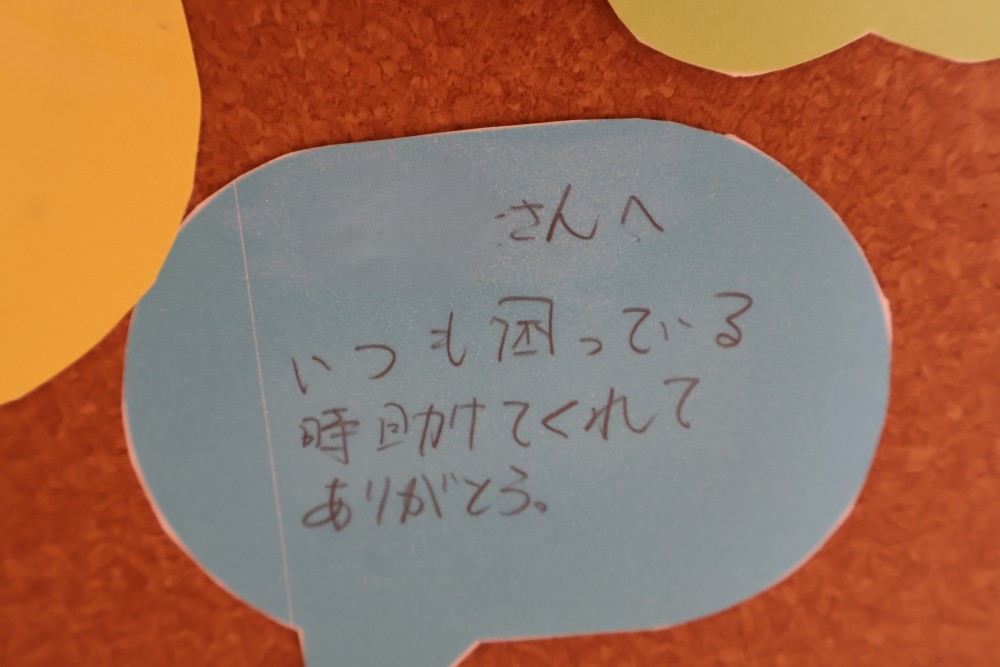 さんへ
いつも困っている
時助けてくれて
ありがとう。